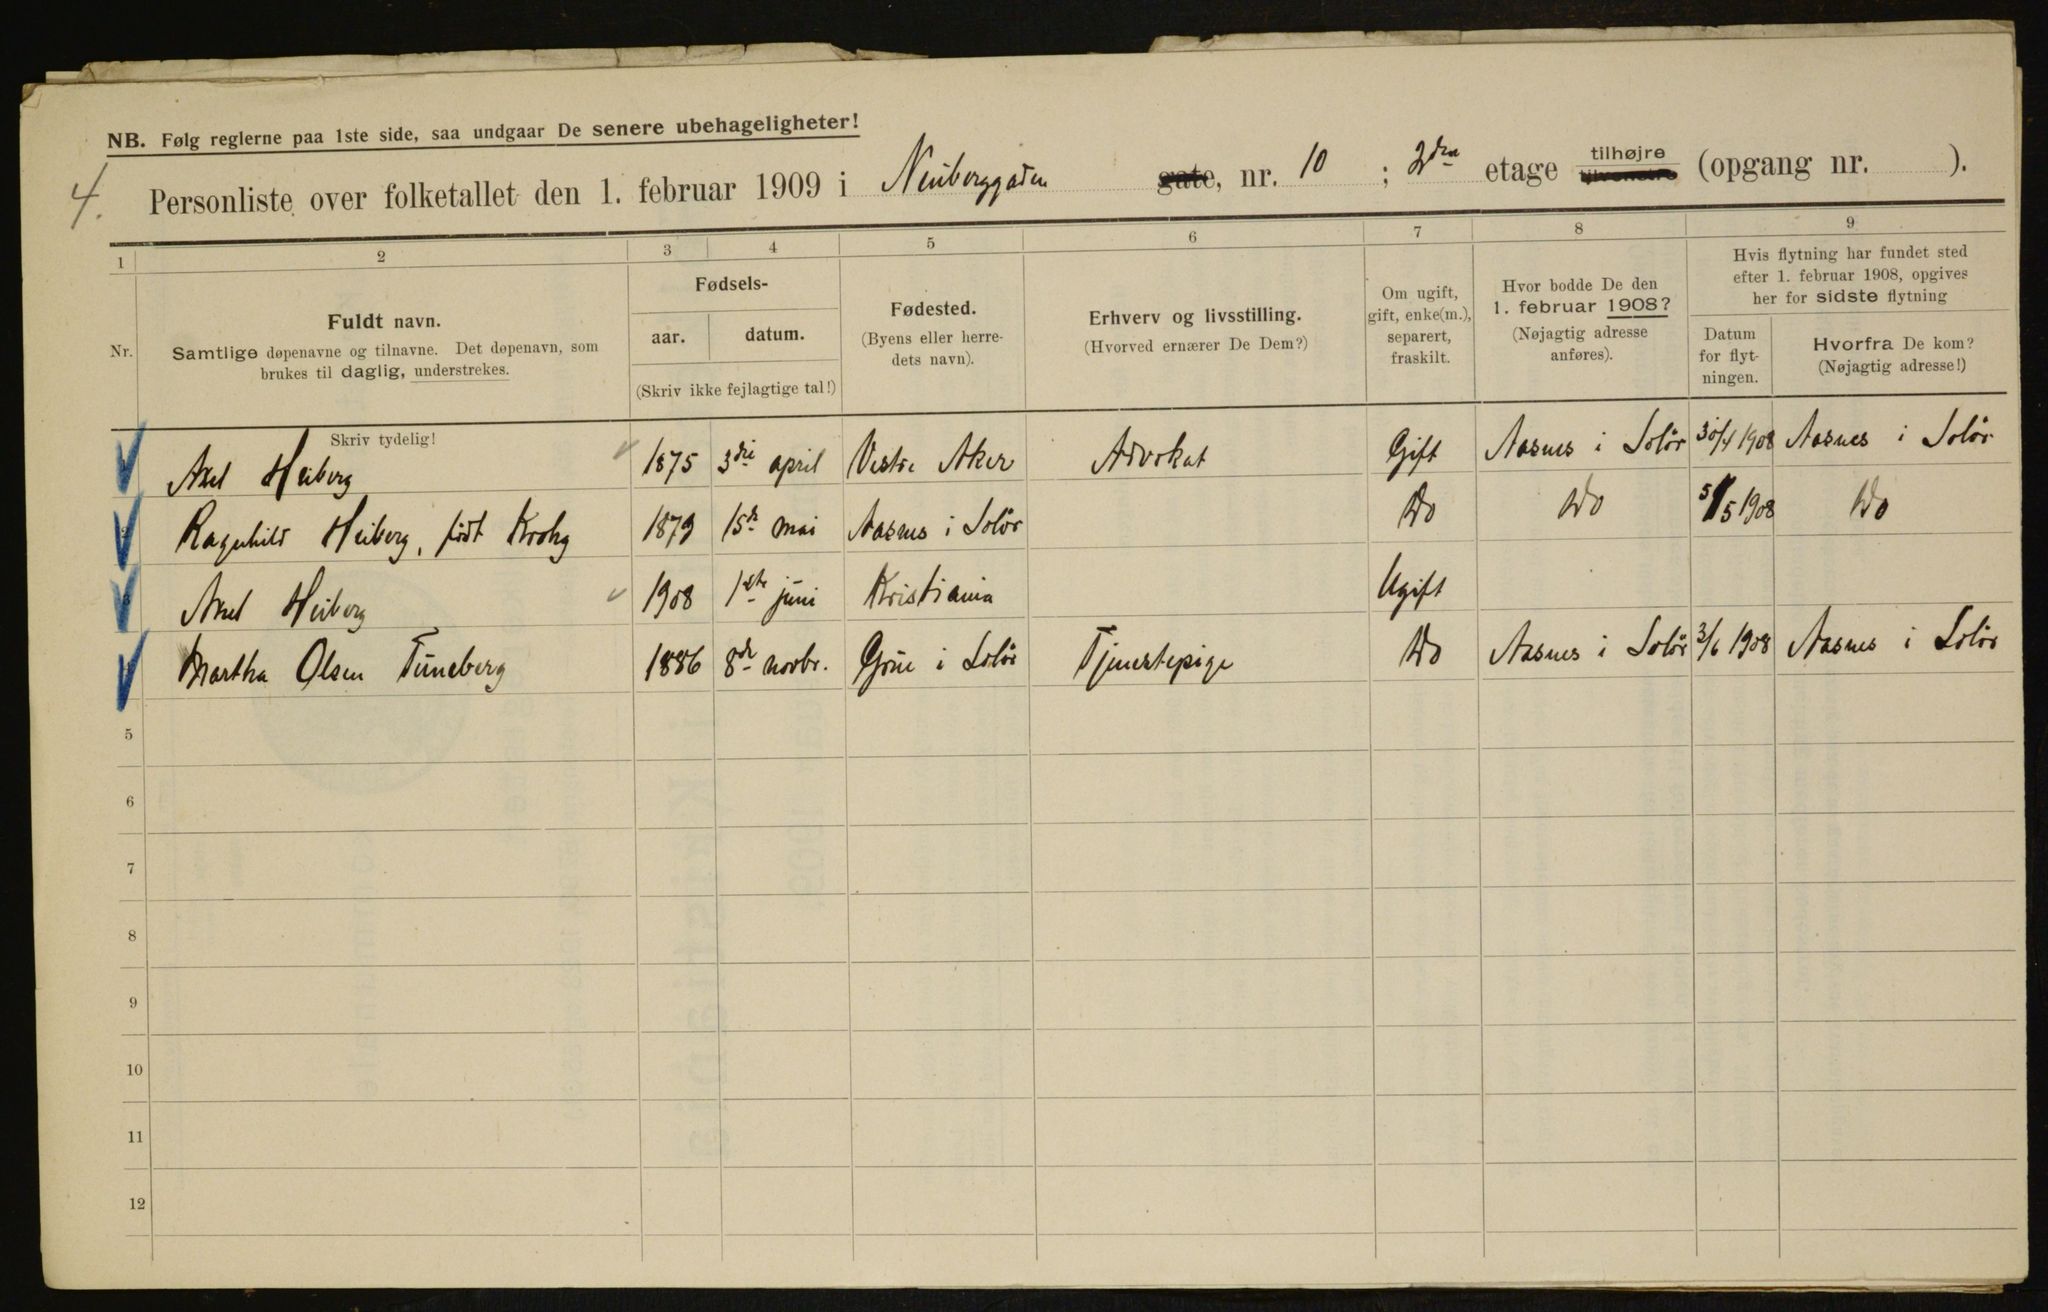 NB. Følg reglerne paa 1ste side, saa undgaar De senere ubehageligheter!
4. Personliste over folketallet den 1. februar 1909 i Neuberggaden gate, nr. 10 ; 2den etage tilhøjre tilvenstre (opgang nr. ).
1 2 3 4 5 6 7 8 9
Nr.
Fuldt navn.
Samtlige døpenavne og tilnavne. Det døpenavn, som
brukes til daglig, understrekes.
Fødsels-
aar. datum.
(Skriv ikke fejlagtige tal!)
Fødested.
(Byens eller herre-
dets navn).
Erhverv og livsstilling.
(Hvorved ernærer De Dem?)
Om ugift,
gift, enke(m.),
separert,
fraskilt.
Hvor bodde De den
1. februar 1908?
(Nøjagtig adresse
anføres).
Hvis flytning har fundet sted
efter 1. februar 1908, opgives
her for sidste flytning
Datum
for flyt-
ningen.
Hvorfra De kom?
(Nøjagtig adresse!)
Skriv tydelig!
Axel Heiberg 1875 3die april Vestre Aker Advokat Gift Aasnes i Solör 30/4 1908 Aasnes i Solör
2 Ragnhild Heiberg, født Krohg 1879 15de mai Aasnes i Solör Do Do 5/5 1908 Do
3 Axel Heiberg 1908 1ste juni Kristiania Ugift
Martha Olsen Tuneberg 1886 8de novbr. Grue i Solör Tjenestepige Do Aasnes i Solör 3/6 1908 Aasnes i Solör
5
6
7
8
9
10
11
12